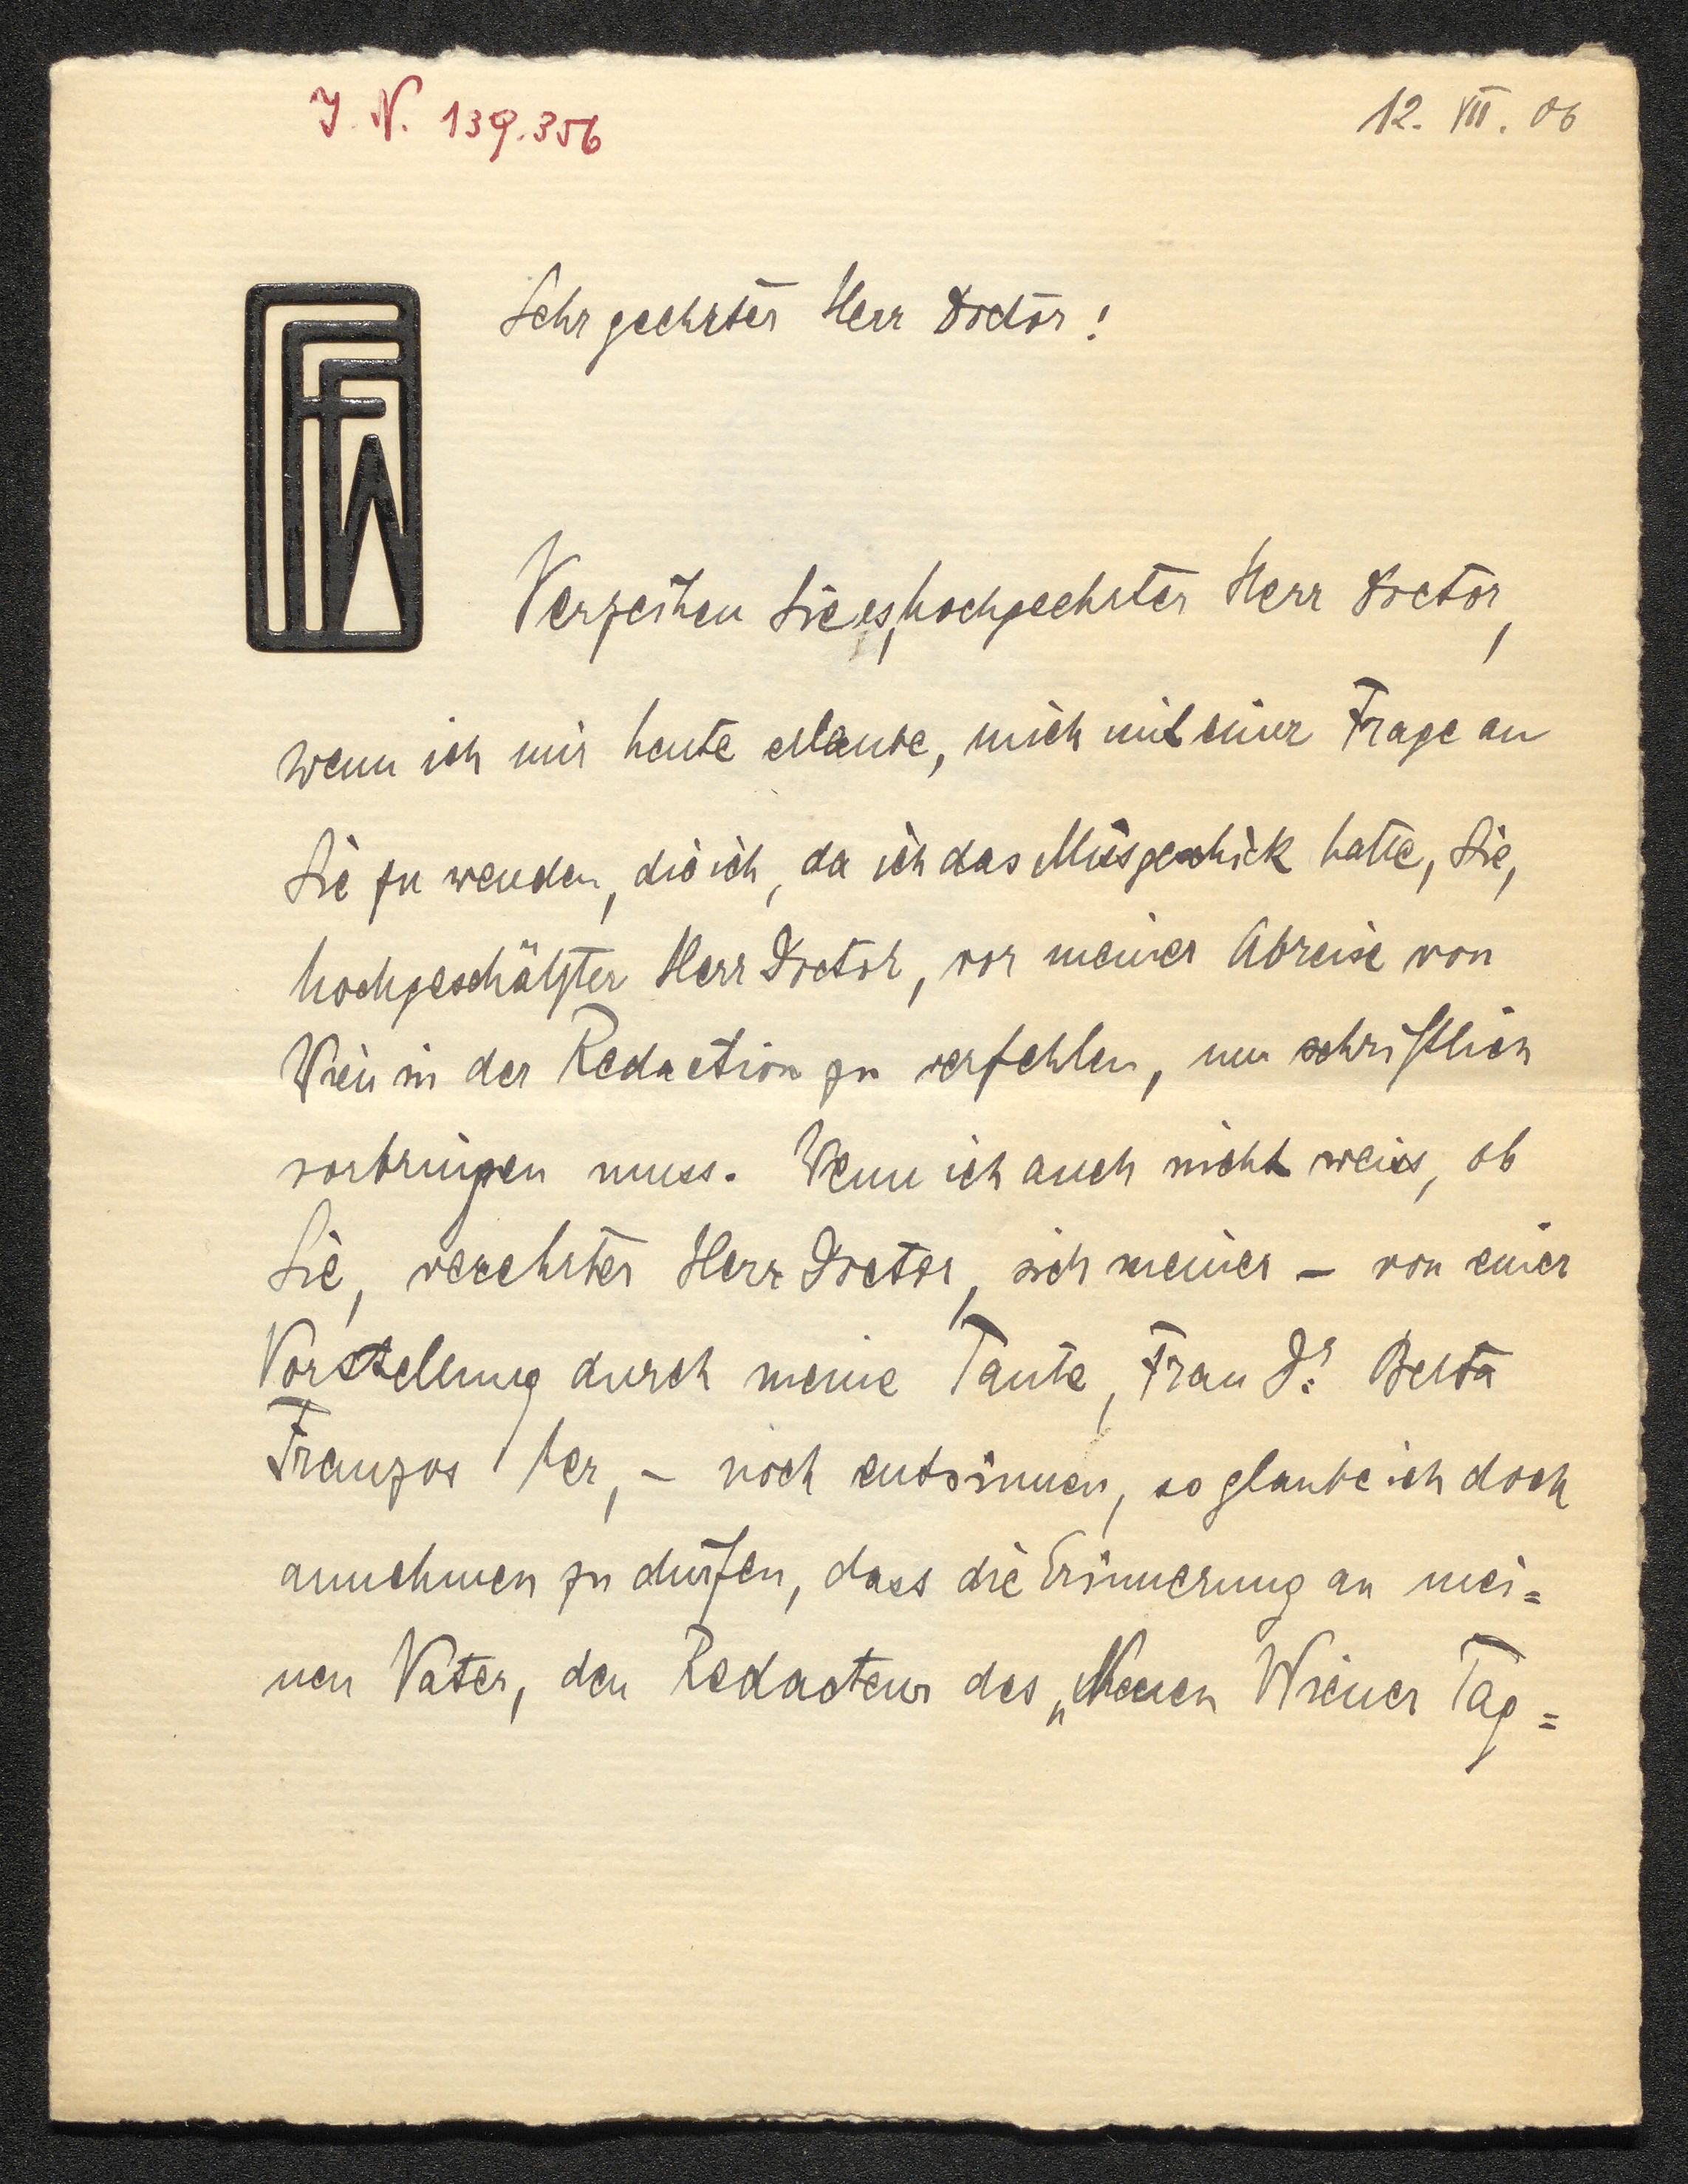 J. N. 139.356
12. VII. 06
Sehr geehrter Herr Doctor!
Verzeihen Sie es, hochgeehrter Herr Doctor,
wenn ich mir heute erlaube, mich mit einer Frage an
Sie zu wenden, die ich, da ich das Misgeschick hatte, Sie,
hochgeschätzter Herr Doctor, vor meiner Abreise von
Wien in der Redaction zu verfehlen, nun schriftlich
vorbringen muss. Wenn ich auch nicht weiss, ob
Sie, verehrter Herr Doctor, sich meiner – von einer
Vorstellung durch meine Tante, Frau Dr. Berta
Franzos her, – noch entsinnen, so glaube ich doch
annehmen zu dürfen, dass die Erinnerung an mei=
nen Vater, den Redacteur des „Neuen Wiener Tag=